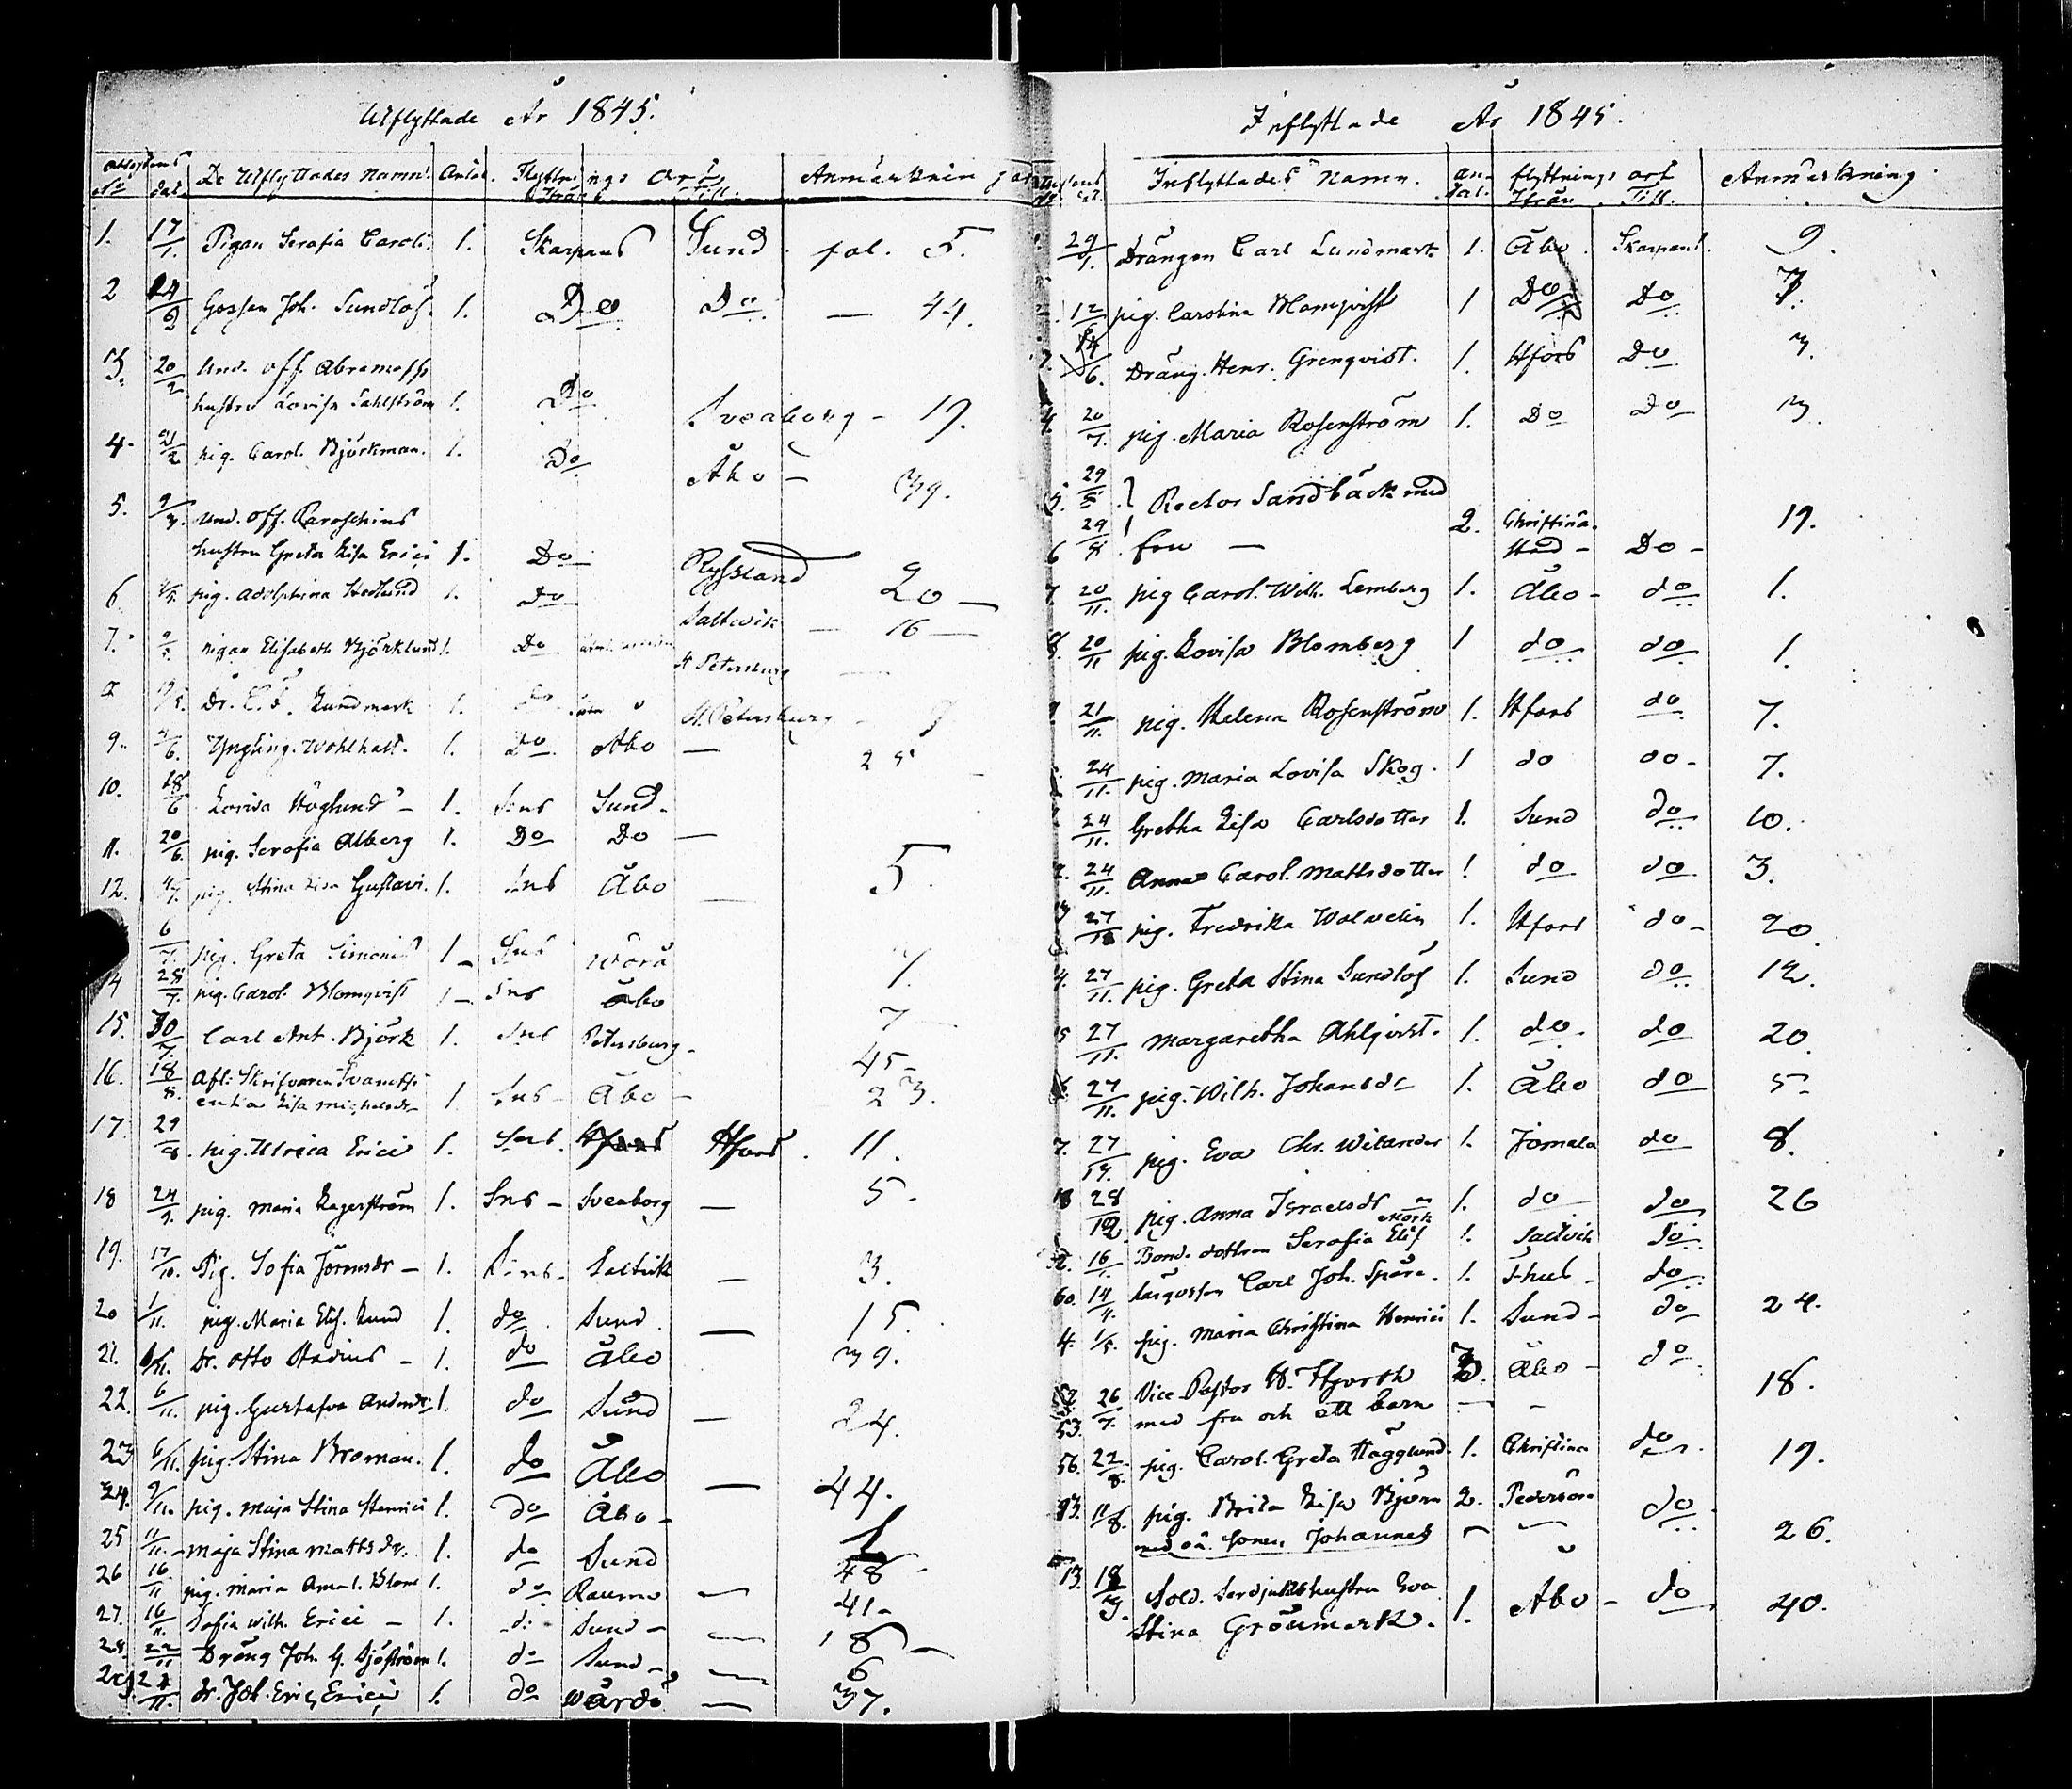 Utflyttade År 1845.
De Utflyttades Namn. Antal. Flyttnings Ort Anmärkningar
No dat. Ifrån Till
1. 17/1. Pigan Serafia Caroli. 1. Skarpans Sund fol. 5.
2 24/2 Gossen Joh. Sundlöf. 1. Do Do — 44.
3. 20/2 Und. off.
hustru Lovisa Sahlström 1. Do Sveaborg - 19.
4. 21/2 pig. Carol. Björkman. 1. Do Åbo — 39.
5. 9/3. Und. off.
hustru Greta Lisa Erici 1. Do Ryssland 20 —
6 pig. Adolphina Hedlund 1. Do Saltvik — 16 —
7. pigan Elisabeth Björklund 1. Do St Petersburg —
Dr. Lundmark 1. Do St. Petersburg - 9
9. Yngling. Wohlhatt. 1. Do Åbo — 25
10. 18/6 Lovisa Höglund - 1. Sns Sund.
11. 20/6. pig. Serafia Alberg 1. Do Do —
12. 4/7. pig. Stina Lisa Gustavi. 1. Sns Åbo — 5.
6/7. pig. Greta Simonis 1 - Sns Wörå 7.
14 28/7. pig. Carol. Blomqvist 1 - Sns Åbo 7
15. 30/7. Carl Ant. Björk 1. Sns Petersburg. 45-
16. 18/8. Afl: Skrifvaren
enka Lisa Michelsdr 1. Sns - Åbo - 23.
17. 29/8. pig. Ulrica Erici 1. Sns. Hfors Hfors. 11.
18 24/9. pig. Maria Lagerström 1. Sns - Sveaborg — 5.
19. 17/10. Pig. Sofia Jörnsdr - 1. Sns - Saltvik — 3.
20 1/11. pig. Maria Elis. Lund 1. do Sund. — 15.
21. Dr. Otto Stadius - 1. do Åbo 39.
22. 6/11. pig. Gustafva Andersdr. 1. do Sund — 24.
23 6/11. pig. Stina Broman. 1. do Åbo — 44.
24. 9/11. pig. Maja Stina Henrici 1. do Åbo - 1
25 11/11. Maja Stina Mattsdr. 1. do Sund 48 -
26 16/11 pig. Maria Amal. Blom 1. do Raumo — 41-
27. 16/11. Sofia Wilh. Erici - 1. do Sund - — 18 -
28. 22/11 Dräng Joh. G. Sjöström 1. do Sund - — 6
29. 24/11. dr. Joh. Eric Erici 1. do Wårdö — 37.
Inflyttade År 1845.
Inflyttades Namn. Antal. flyttnings ort Anmärkning
Ifrån. Till.
29/1. Drängen Carl Lundmark 1. Åbo. Skarpans. 9.
12 pig. Carolina Blomqvist 1 Do Do 7.
14/6. Dräng. Henr. Grenqvist. 1. Hfors Do 7.
4. 20/7. pig. Maria Rosenström 1. Do Do 3.
5. 29/8 Rector Sandbäck med
6 29/8. fru — 2. Christina-
stad - Do - 19.
7. 20/11. pig Carol. Wilh. Lemberg 1. Åbo - do 1.
8. 20/11 pig. Lovisa Blomberg 1 do do 1.
21/11. pig. Helena Rosenström 1. Hfors do 7.
24/11. pig. Maria Lovisa Skog. 1 do do - 7.
24/11. Gretha Lisa Carlsdotter 1. Sund do 10.
24/11. Anna Carol. Mattsdotter 1 do do 3.
27/11 pig. Fredrika Wolvelin 1. Hfors do - 20.
4. 27/11. pig. Greta Stina Sundlöf 1. Sund do 12.
5 27/11. Margaretha Ahlqvist. 1. do do 20.
27/11. pig. Wilh. Johansdr 1. Åbo do 5.
7. 27/ pig. Eva Chr. Wilander 1. Jomala do 8.
18 28/12 pig. Anna Israelsdr 1. do do 26
16/1. Bond. dottren Serafia Elis. Mörk 1. Saltvik do
60. 14/4. Carl Joh. Spåre. 1. do
4. 1/5. pig. Maria Christina Henrici 1. Sund - do 24.
52. 26/7. Vice Pastor H. Hjorth 3. Åbo - do
53. med fru och ett barn — - 18.
56. 22/8. pig. Carol. Greta Hägglund. 1. Christina do 19.
93. 11/8. pig. Brita Lisa Björn 2. Pedersöre do
med oä. sonen Johannes 26.
13. 18/9. Sold. hustru Eva
Stina Grönmark. 1. Åbo - do 40.